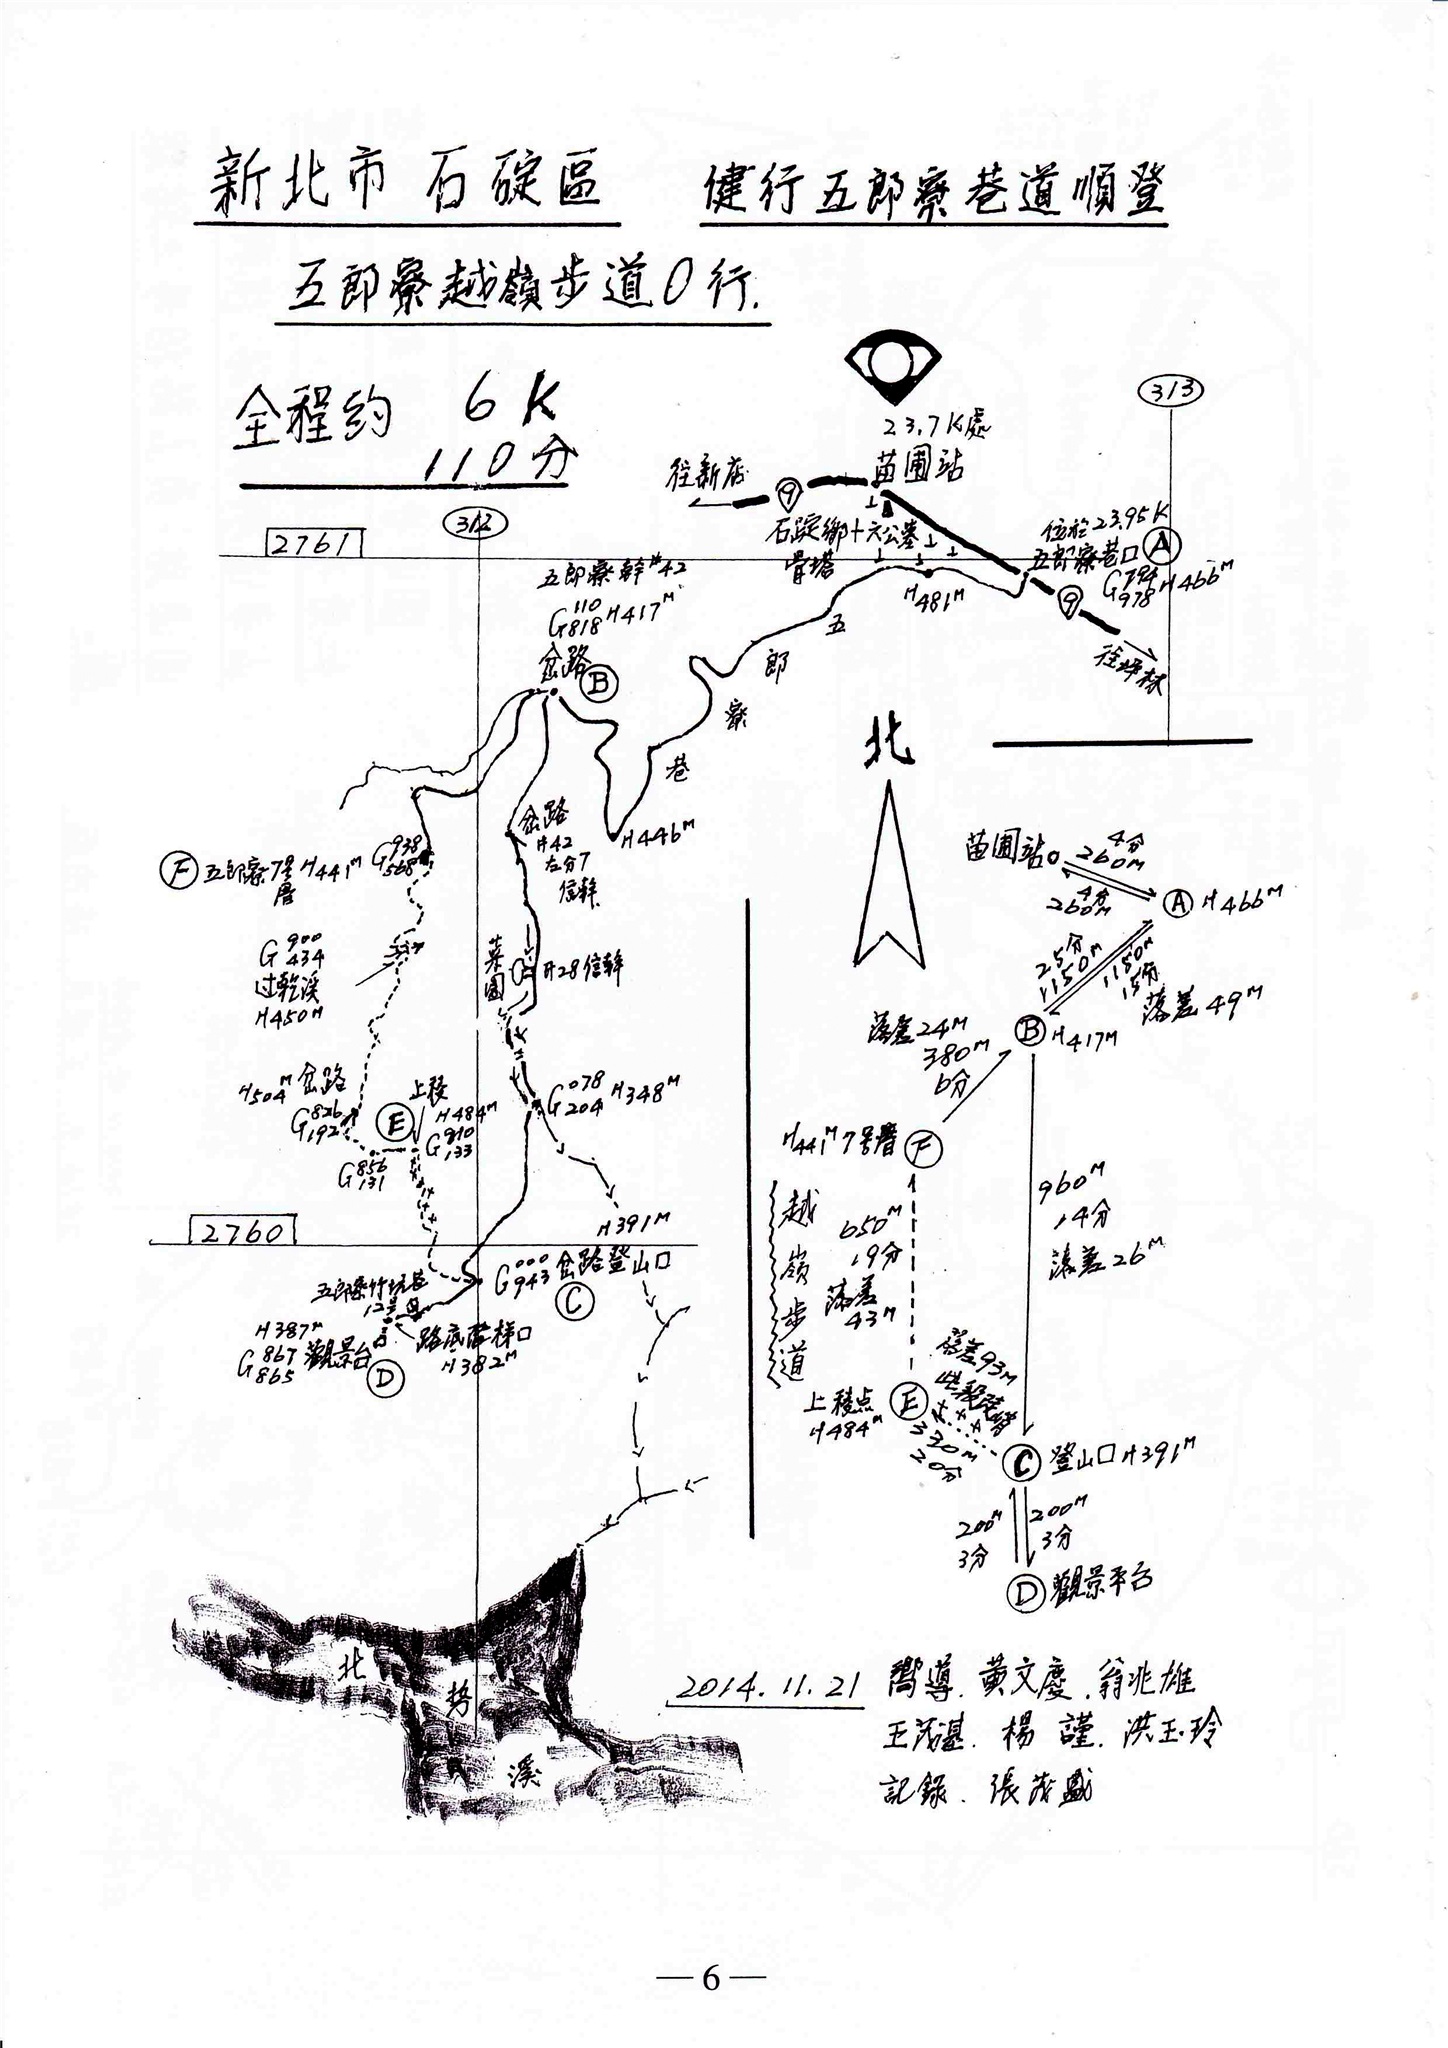 新北市 石碇區 健行五郎寮巷道順登
五郎寮越嶺步道O行.
全程約 6K
110分
313
23.7K處
苗圃站
往新店
9
312
2761
石碇鄉十六公墓
骨塔
位於23.95K
五郎寮巷口 A
G 794 978 H466M
9
往坪林
H481M
五郎寮幹#42
G 110 818 H417M
岔路 B
五
郎
寮
巷
北
H446M
岔路
H42
左分7
信幹
F 五郎寮7号厝 H441M
G 938 568
G 900 434
过乾溪
H450M
菜園
H28信幹
H504M 岔路
G 826 192
E 上稜
H484M
G 810 133
G 856 131
G 078 204 H348M
2760
H391M
G 000 943 岔路登山口
C
五郎寮竹坑巷
12号
H387M
G 867 865 觀景台
D
路底階梯口
H382M
北
勢
溪
苗圃站
4分
260M
4分
260M
A H466M
25分
1150M
1150M
15分
落差49M
B H417M
落差24M
380M
6分
H441M 7号厝 F
越嶺步道
650M
19分
落差
43M
960M
14分
落差26M
落差93M
上稜点
H484M
E
330M
20分
C 登山口H391M
200M
3分
200M
3分
D 觀景平台
2014.11.21 嚮導.黃文慶.翁兆雄
王茂湛. 楊 謹. 洪玉玲
記錄. 張茂盛
—6—